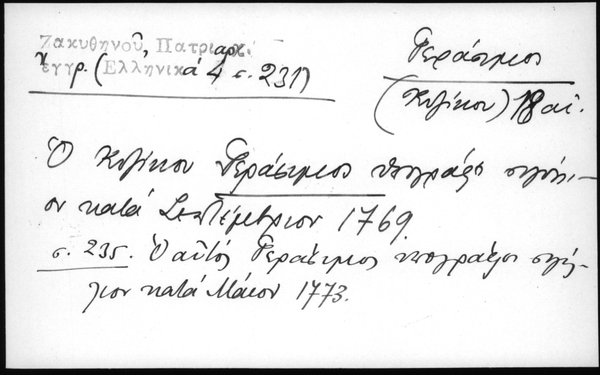 Ζακυθηνοῦ, Πατριαρχ.
ἔγγρ. (Ἑλληνικὰ 4 σ. 231)
Γεράσιμος
(Κυζίκου) 18 αἰ.
Ὁ Κυζίκου Γεράσιμος ὑπογράφει σιγίλλι-
ον κατὰ Σεπτέμβριον 1769.
σ. 235. Ὁ αὐτὸς Γεράσιμος ὑπογράφει σιγίλ-
λιον κατὰ Μάιον 1773.